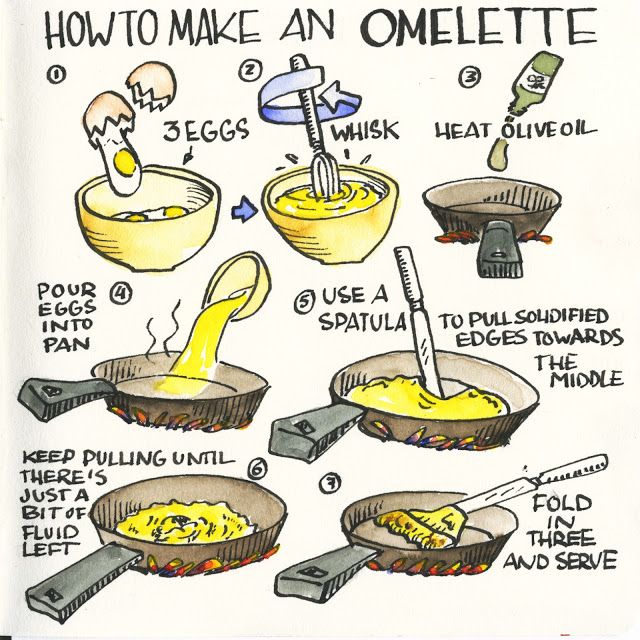 HOW TO MAKE AN OMELETTE
1
3 EGGS
2
WHISK
3
HEAT OLIVE OIL
4
POUR
EGGS
INTO
PAN
5
USE A
SPATULA
TO PULL SOLIDIFIED
EDGES TOWARDS
THE
MIDDLE
6
KEEP PULLING UNTIL
THERE'S
JUST A
BIT OF
FLUID
LEFT
7
FOLD
IN
THREE
AND SERVE